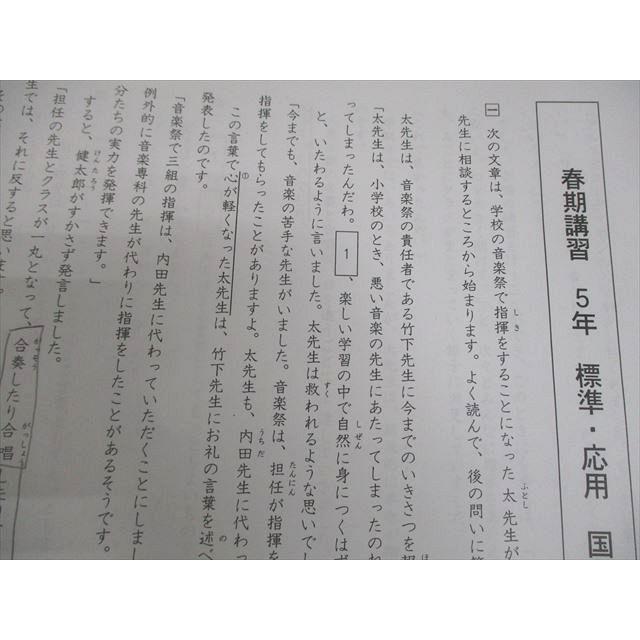 春期講習 5年 標準・応用 国
一 次の文章は、学校の音楽祭で指揮をすることになった太先生が
しき
ふとし
先生に相談するところから始まります。よく読んで、後の問いに
太先生は、音楽祭の責任者である竹下先生に今までのいきさつを
「太先生は、小学校のとき、悪い音楽の先生にあたってしまったのね
ってしまったんだわ。 1 、楽しい学習の中で自然に身につくはず
しぜん
と、いたわるように言いました。太先生は救われるような思いでし
すく
「今までも、音楽の苦手な先生がいました。音楽祭は、担任が指揮を
たんにん
指揮をしてもらったことがありますよ。太先生も、内田先生に代わっ
うちだ
この言葉で心が軽くなった太先生は、竹下先生にお礼の言葉を述べ
①
の
発表したのです。
「音楽祭で三組の指揮は、内田先生に代わっていただくことにしま
例外的に音楽専科の先生が代わりに指揮をしたことがあるそうです。
分たちの実力を発揮できます。」
すると、健太郎がすかさず発言しました。
けんたろう
「担任の先生とクラスが一丸となって、合奏したり合唱
がっそう
がっしょう
生では、それに反すると思います。